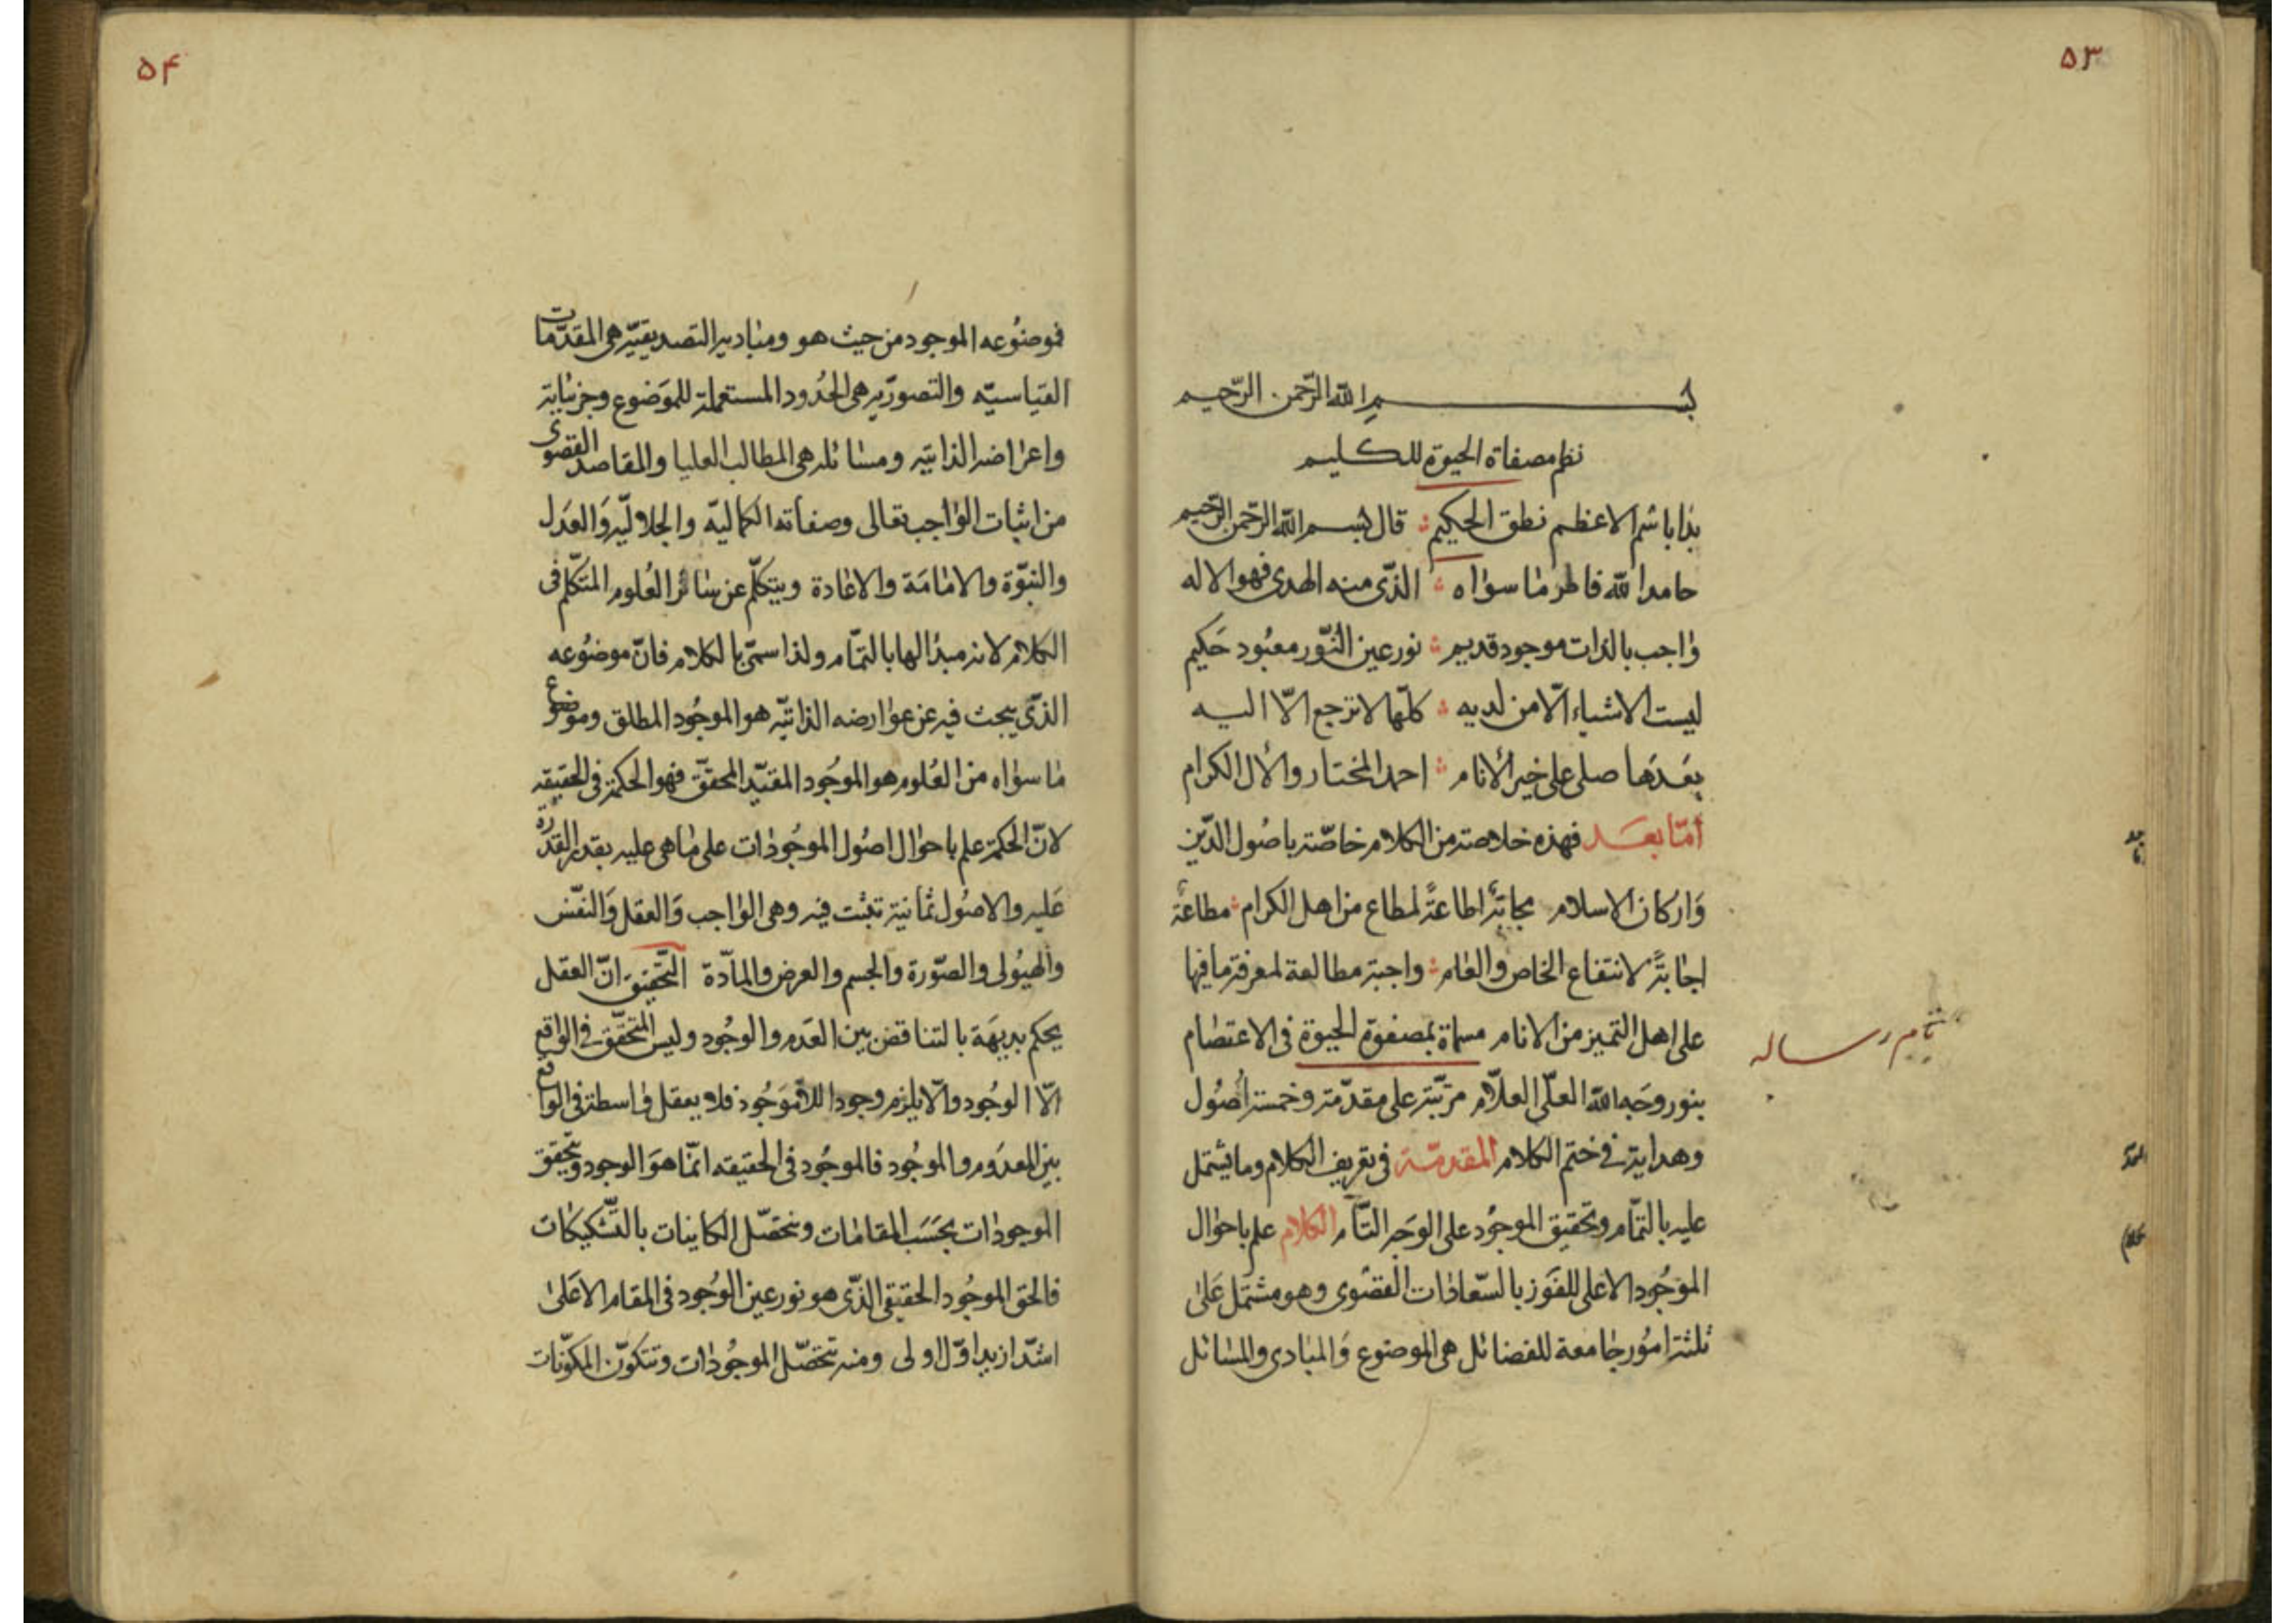 ۵۳
بسم الله الرّحمن الرّحيم
نظم مصفاة الحيوة للكليم
بذا باسم الاعظم نطق الحكيم ؛ قال بسم الله الرّحمن الرّحيم
حامدا لله فاطر ما سواه ؛ الذّى منه الهدى فهو الاله
واجب بالذات موجود قديم ؛ نور عين النّور معبُود حَكيم
ليست الاشياء الّا من لديه ؛ كلّها لا ترجع الّا اليه
بعدَها صلى على خير الأنام ؛ احمد المختار والأل الكرام
أمّا بعد فهذه خلاصة من الكلام خاصّة باصُول الدّين
وَاركان الاسلام مجابَة اطاعةً لمطاع من اهل الكرام ؛ مطاعة
اجابةً لانتفاع الخاص والعام ؛ واجبة مطالعة لمعرفة ما فيها
على اهل التميز من الانام مسماة بمصفوة الحيوة فى الاعتصام
بنور وَجه الله العلّى العلّام مرتّبة على مقدّمة وخمسة اُصُول
وهداية فى ختم الكلام المقدمّة فى تعريف الكلام وما يشتمل
عليه بالتمّام وتحقيق الموجُود على الوَجه التاّم الكلام علم باحوال
الموجُود الاعلى للفَوز بالسّعادات القصوى وهو مشتمل عَلى
ثلثة امُور جامعة للفضائل هى الموضوع وَالمبادى والمسائل
تمام رساله
۵۴
فموضُوعه الموجود من حيث هو ومباديه التصديقيّه هى المقدّمات
القياسيّه والتصوّريه هى الحُدود المستعملة للموَضوع وجزئياته
واعراضه الذاتيّه ومسائله هى المطالب العليا والمقاصد القصوى
من اثبات الواجب تعالى وصفاته الكماليّه والجلاليّه وَالعدَل
والنبوّة والامامَة والاعادة ويتكلّم عن سائر العُلوم المتكلّم فى
الكلام لانه مبدُالها بالتمّام ولذا سمّى بالكلام فانّ موضُوعه
الذّى يبحث فيه عن عوارضه الذاتيّه هو الموجُود المطلق وموضوع
ما سواه من العُلوم هو الموجُود المقيّد المحقّق فهو الحكمة فى الحقيقه
لانّ الحكمة علم باحوال اصُول الموجُودات على ما هى عليه بقدر القدرة
عَليه والاصُول ثمانية تبثت فيه وهى الواجب وَالعقل وَالنفّس
والهيُولى والصّورة والجسم والعرض والمادّة التّحقيق انّ العقل
يحكم بديهَة بالتناقض بين العدَم والوجُود وليس المتحقّق فى الواقع
الّا الوجُود والّا يلزم وجود اللاّموَجُود فلا يعقل واسطة فى الواقع
بين المعدوم والموجُود فالموجُود فى الحقيقه انمّا هوَ الوجود وتحقّق
الموجودات بحَسَب المقامات وتحصّل الكاينات بالتّشكيكات
فالحق الموجُود الحقيقى الذّى هو نور عين الوجُود فى المقام الاعَلى
اشدّ ازيد اوّل اولى ومنه تتحصّل الموجُودات وتتكوّن المكوّنات